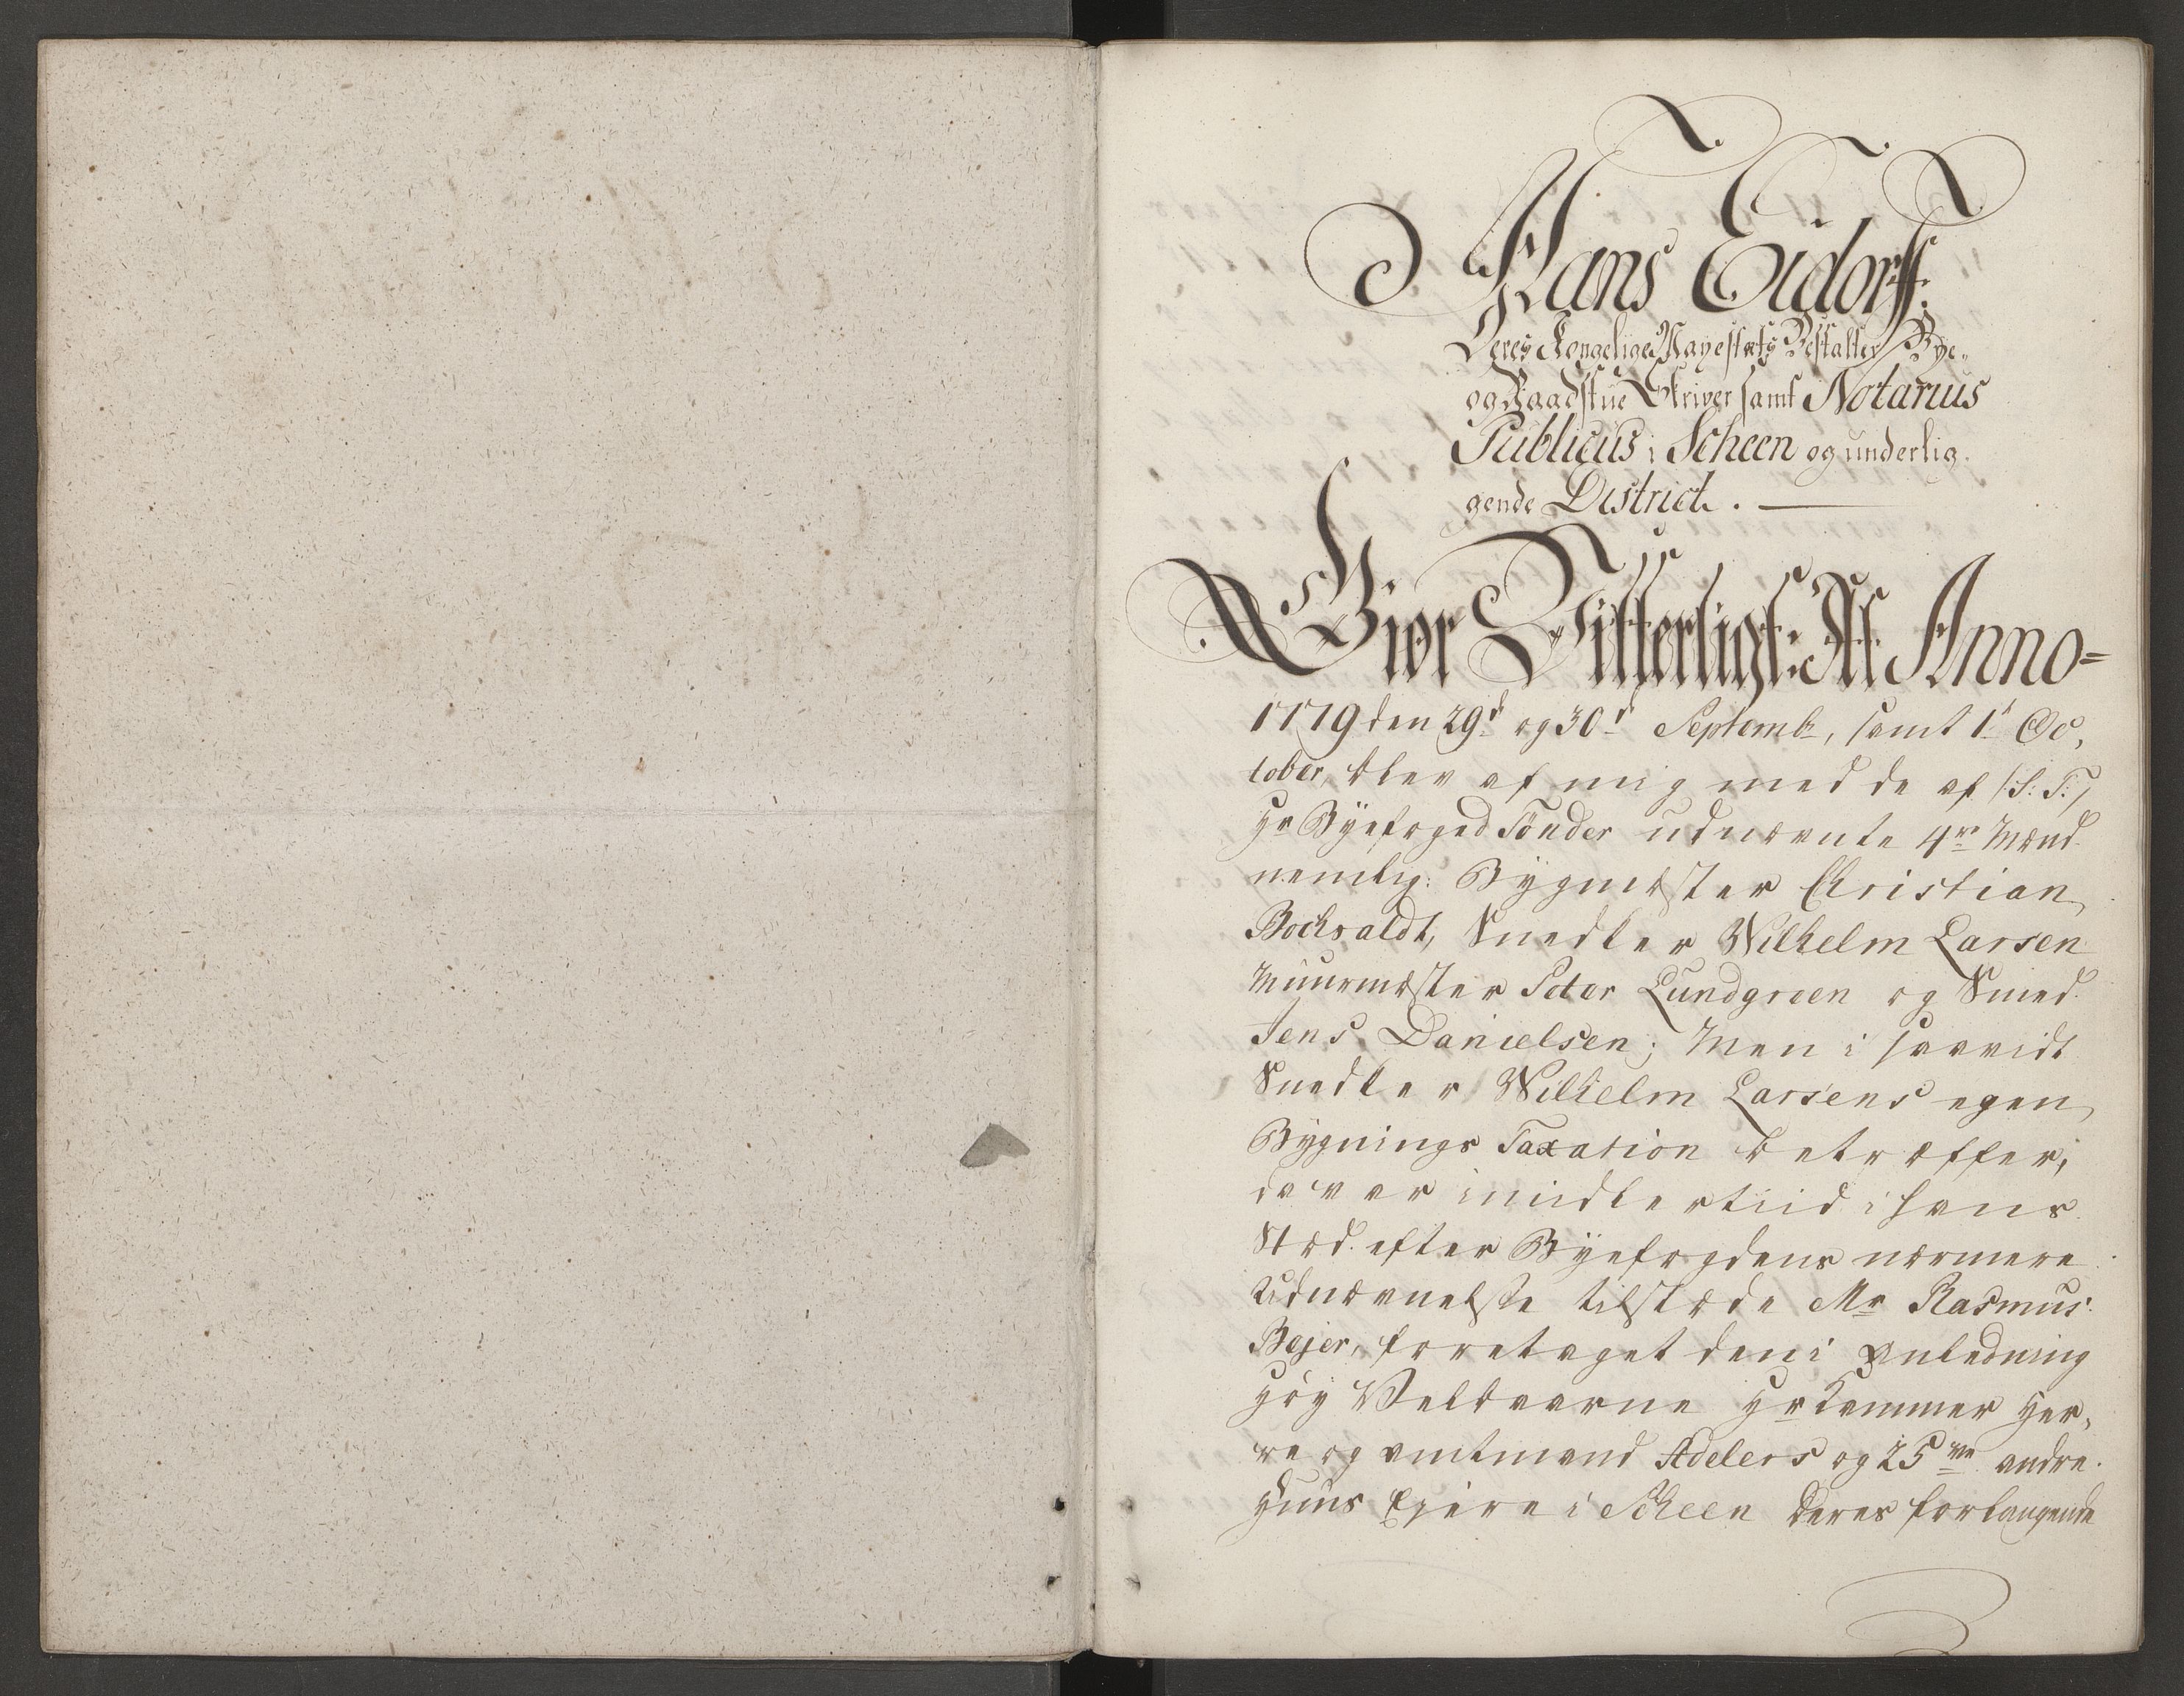 Hans Eidorff
Deres Kongelige Mayestæts Bestalter Bye-
og Raadstue Skriver samt Notarius
Publicus i Scheen og underlig-
gende District. —
Giør Vitterligt: At Anno=
1779 den 29d og 30d Septembr, samt 1d Oc,
tober, blev af mig med de af /:S:T:/
Hr Byefoged Tønder udnævnte 4re Mænd
nemlig: Bygmester Christian
Bochvaldt, Snedker Wilhelm Larsen
Muurmester Peter Lundgreen og Smed
Jens Danielsen; Men i saavidt
Snedker Wilhelm Larsens egen
Bygnings Taxation betræffer,
da var imidlertiid i hans
Stæd efter Byefogdens nærmere
Udnævnelse tilstæde Mr Rasmus
Bejer, foretaget den i Anledning
Høy Velbaarne Hr Kammer Her,
re og Amtmand Adelers og 25ve andre
Huus Ejere i Scheen deres forlangende